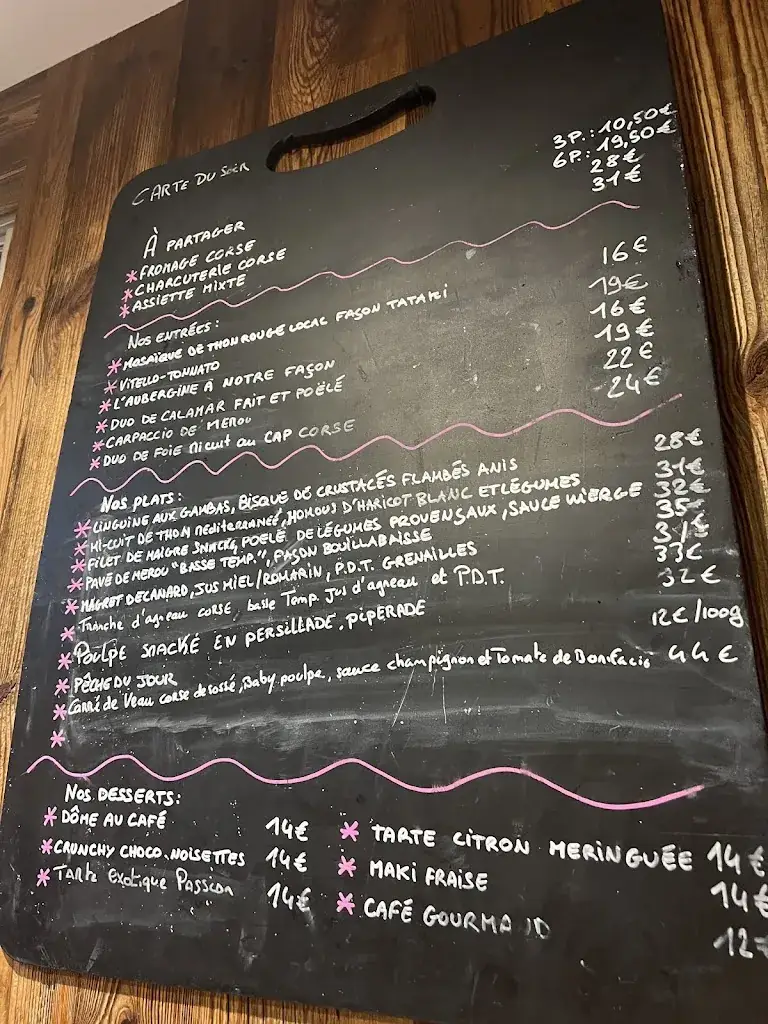 CARTE DU SOIR
À PARTAGER
* FROMAGE CORSE 3P.: 10,50€
6P.: 19,50€
* CHARCUTERIE CORSE 28€
* ASSIETTE MIXTE 31€
NOS ENTRÉES:
* MOSAÏQUE DE THON ROUGE LOCAL FAÇON TATAKI 16€
* VITELLO-TONNATO 19€
* L'AUBERGINE À NOTRE FAÇON 16€
* DUO DE CALAMAR FRIT ET POÊLÉ 19€
* CARPACCIO DE MEROU 22€
* DUO DE FOIE MICUIT AU CAP CORSE 24€
NOS PLATS:
* LINGUINE AUX GAMBAS, BISQUE DE CRUSTACÉS FLAMBÉS ANIS 28€
* MI-CUIT DE THON MEDITERRANEÉ, HOMOUS D'HARICOT BLANC ET LÉGUMES 31€
* FILET DE MAIGRE SNACKÉ, POELÉ DE LÉGUMES PROVENÇAUX, SAUCE VIERGE 32€
* PAVÉ DE MEROU "BASSE TEMP.", FAÇON BOUILLABAISSE 35€
* MAGRET DE CANARD, JUS MIEL/ROMARIN, P.D.T. GRENAILLES
* Tranche d'agneau CORSE, basse Temp. Jus d'agneau et P.D.T. 33€
* POULPE SNACKÉ EN PERSILLADE, PIPERADE 32€
* PÊCHE DU JOUR 12€/100g
* Carré de Veau corse desossé, Baby poulpe, sauce champignon et Tomate de Bonifacio 44€
*
NOS DESSERTS:
* DÔME AU CAFÉ 14€
* CRUNCHY CHOCO.NOISETTES 14€
* Tarte exotique Passion 14€
* TARTE CITRON MERINGUÉE 14€
* MAKI FRAISE 14€
* CAFÉ GOURMAND 12€